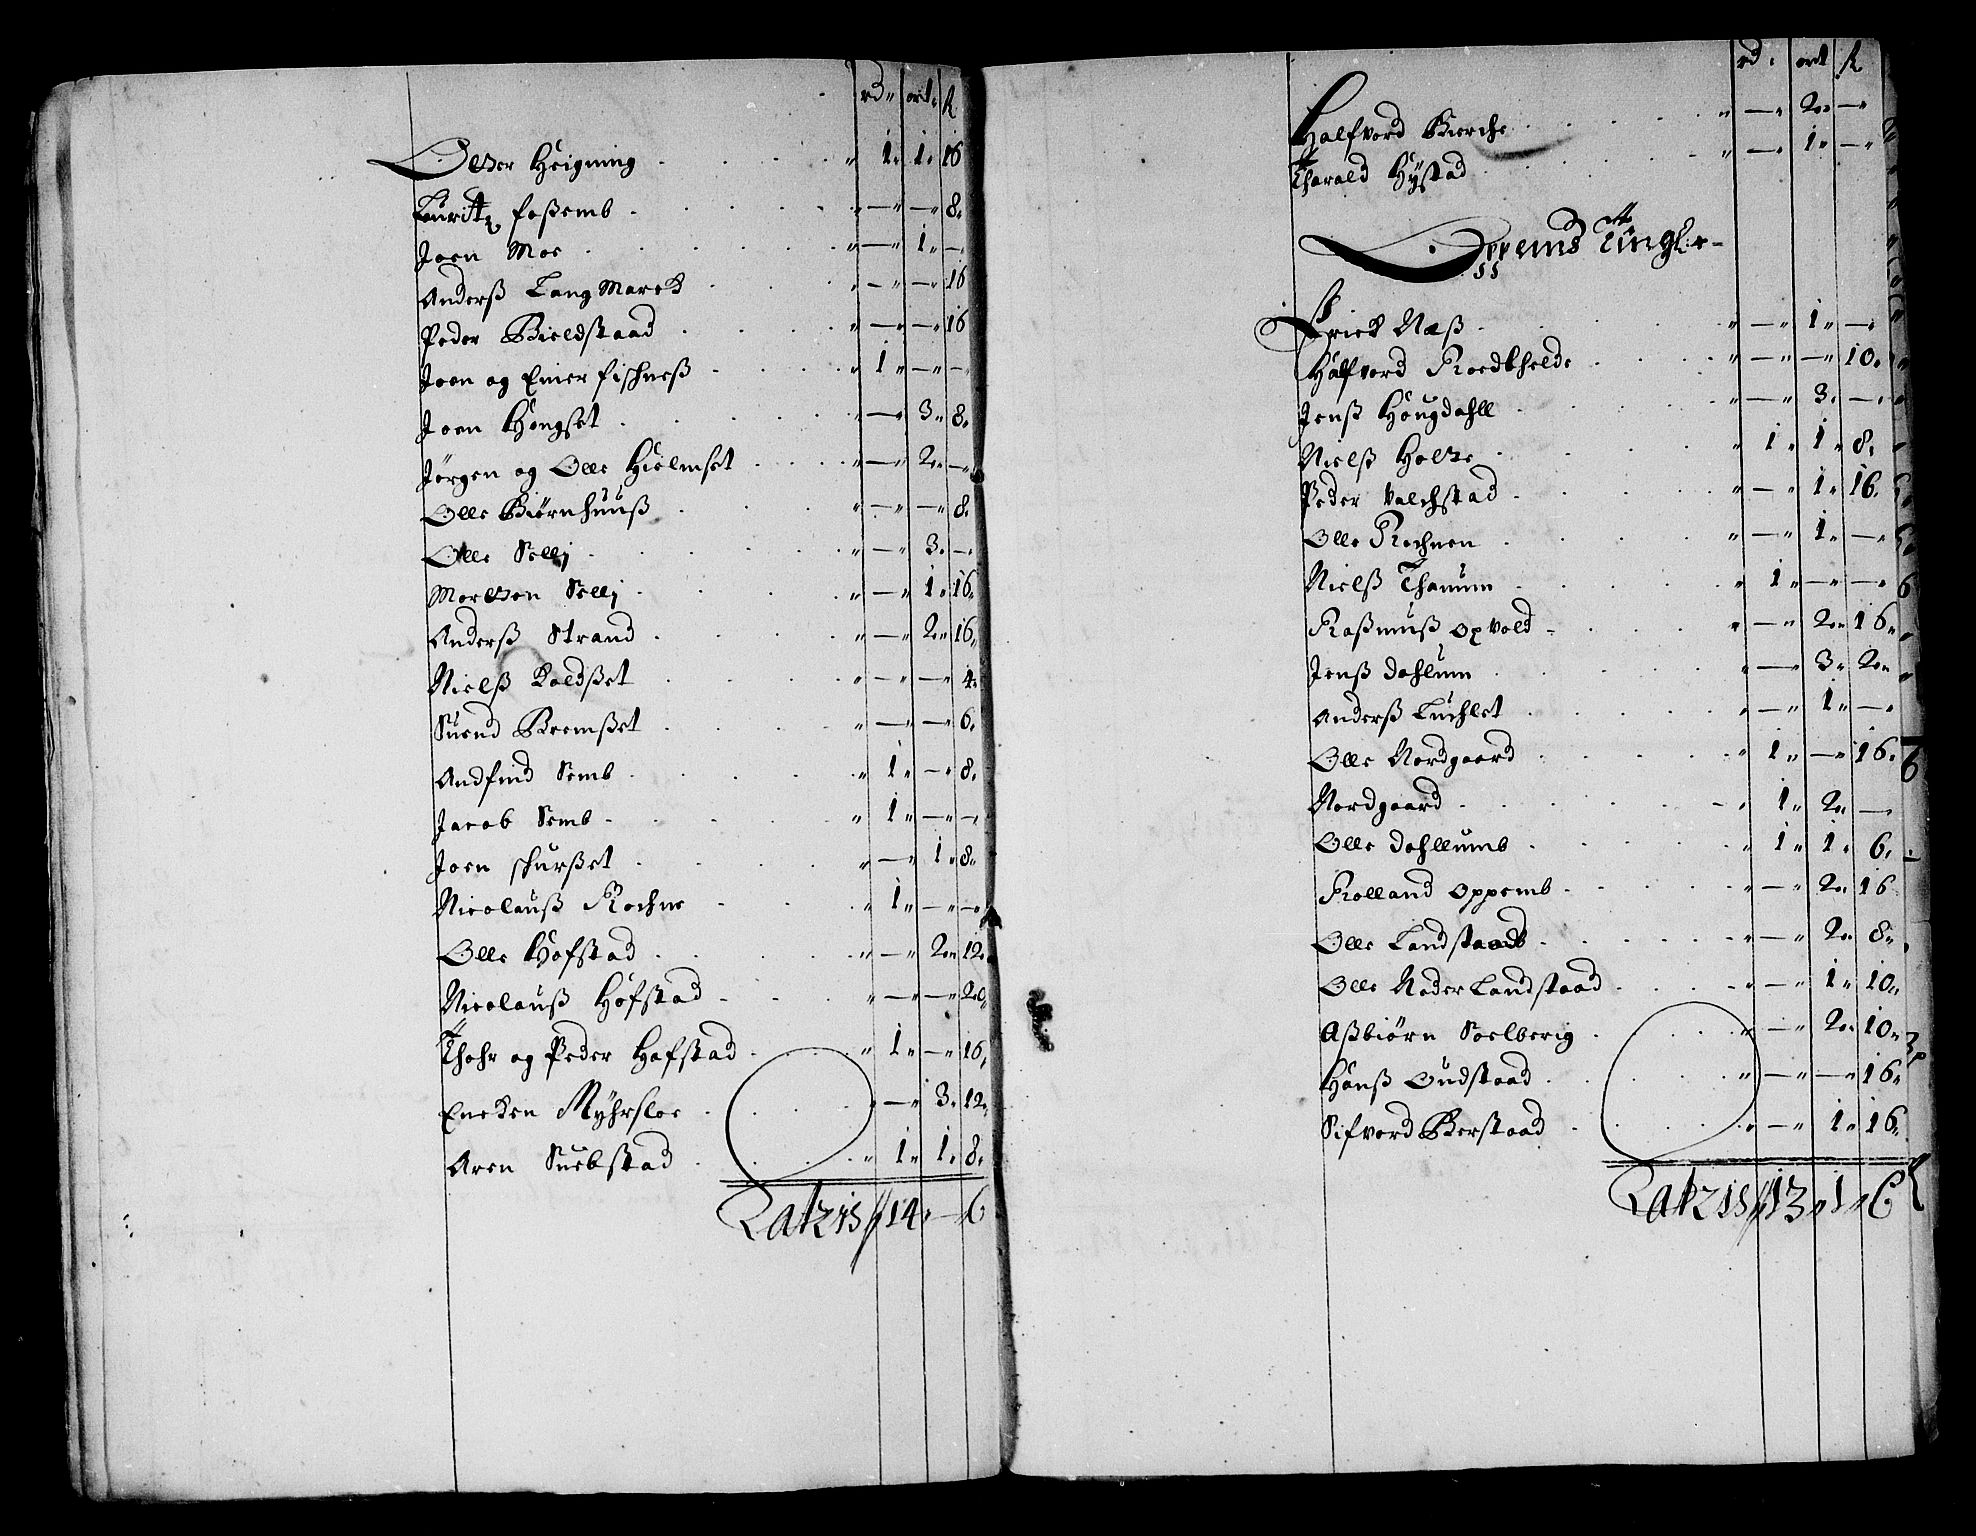 rd ort ß
Olter Heigning " 1 " 1 " 16
Lauritz foßemb " — " — " 8
Joen Moe " — " 1 " —
Anderß Lang Marck " — " — " 16
Peder Bieldstaad " — " — " 16
Joen og Einer fischneß " 1 " — " —
Joen Hongset " — " 3 " 8
Jørgen og Olle Hielmset " — " 2 " —
Olle Biörnhuuß " — " — " 8
Olle Sellj " — " 3 " —
Morten Sellj " — " 1 " 16
Anderß Strand " — " 2 " 16
Nielß Koldßet " — " — " 4
Suend Bremßet " — " — " 6
Andfind Semb " 1 " — " 8
Jacob Semb " 1 " — " —
Joen schurßet " — " 1 " 8
Nicolauß Rochne " 1 " — " —
Olle Hofstad " — " 2 " 12
Nicolauß Hofstad " — " — " 20
Thohr og Peder Hofstad " 1 " — " 16
Encken Myhrsloe " — " 3 " 12
Aren Suebstad " 1 " 1 " 8
Latris // 14 " — " 6
rd ort ß
Halfvord Kierche " — " 2 " —
Tharald Hÿstad " — " 1 " —
Oppemds Tingl:
Erick Næß " — " 1 " —
Halfvord Roedthelde " — " — " 10
Jenß Hougdahll " — " 3 " —
Nielß Holte " 1 " 1 " 8
Peder Valchstad " — " 1 " 16
Olle Rochnen " — " 1 " —
Nielß Thanum " 1 " — " —
Raßmuß opvold " — " 2 " 16
Jenß dahlum " — " 3 " 20
Anderß Luchlet " — " 1 " —
Olle Nordgaard " 1 " — " 16
Nordgaard " 1 " 2 " —
Olle dahllumb " 1 " 1 " 6
Rolland oppemb " — " 2 " 16
Olle Landstaad " — " 2 " 8
Olle Neder Landstaad " — " 1 " 10
Aßbiörn Soelberig " — " 2 " 10
Hanß Gudstaad " — " — " 16
Sifvord Berstaad " — " 1 " 16
Latris // 13 " 1 " 6